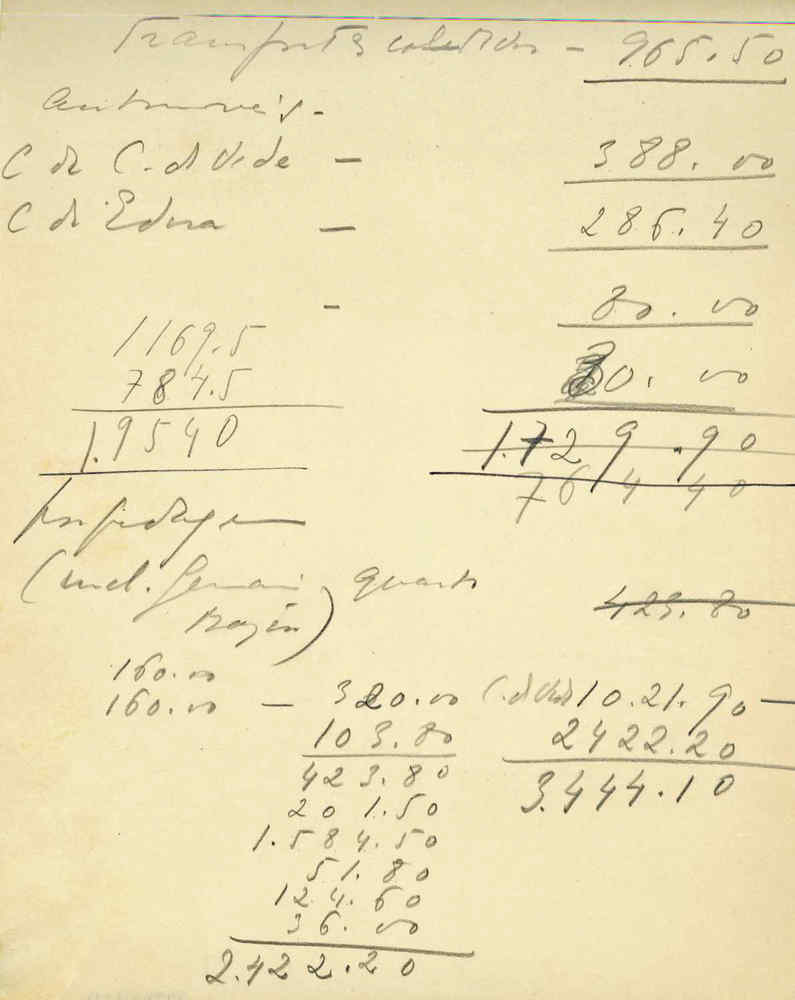 Transportes colectivos - 965.50
Automoveis -
C de C. de Vide - 388.00
C de Edusa - 286.40
- 80.00
1169.5
784.5 30.00
1.9540 1.729.90
764 40
Hospedagem
(incl. quarto 423.80
)
160.00
160.00 - 320.00 C. de Vide 10.21.90 -
103.80 2422.20
423.80 3.444.10
201.50
1.584.50
51.80
124.60
36.00
2.422.20